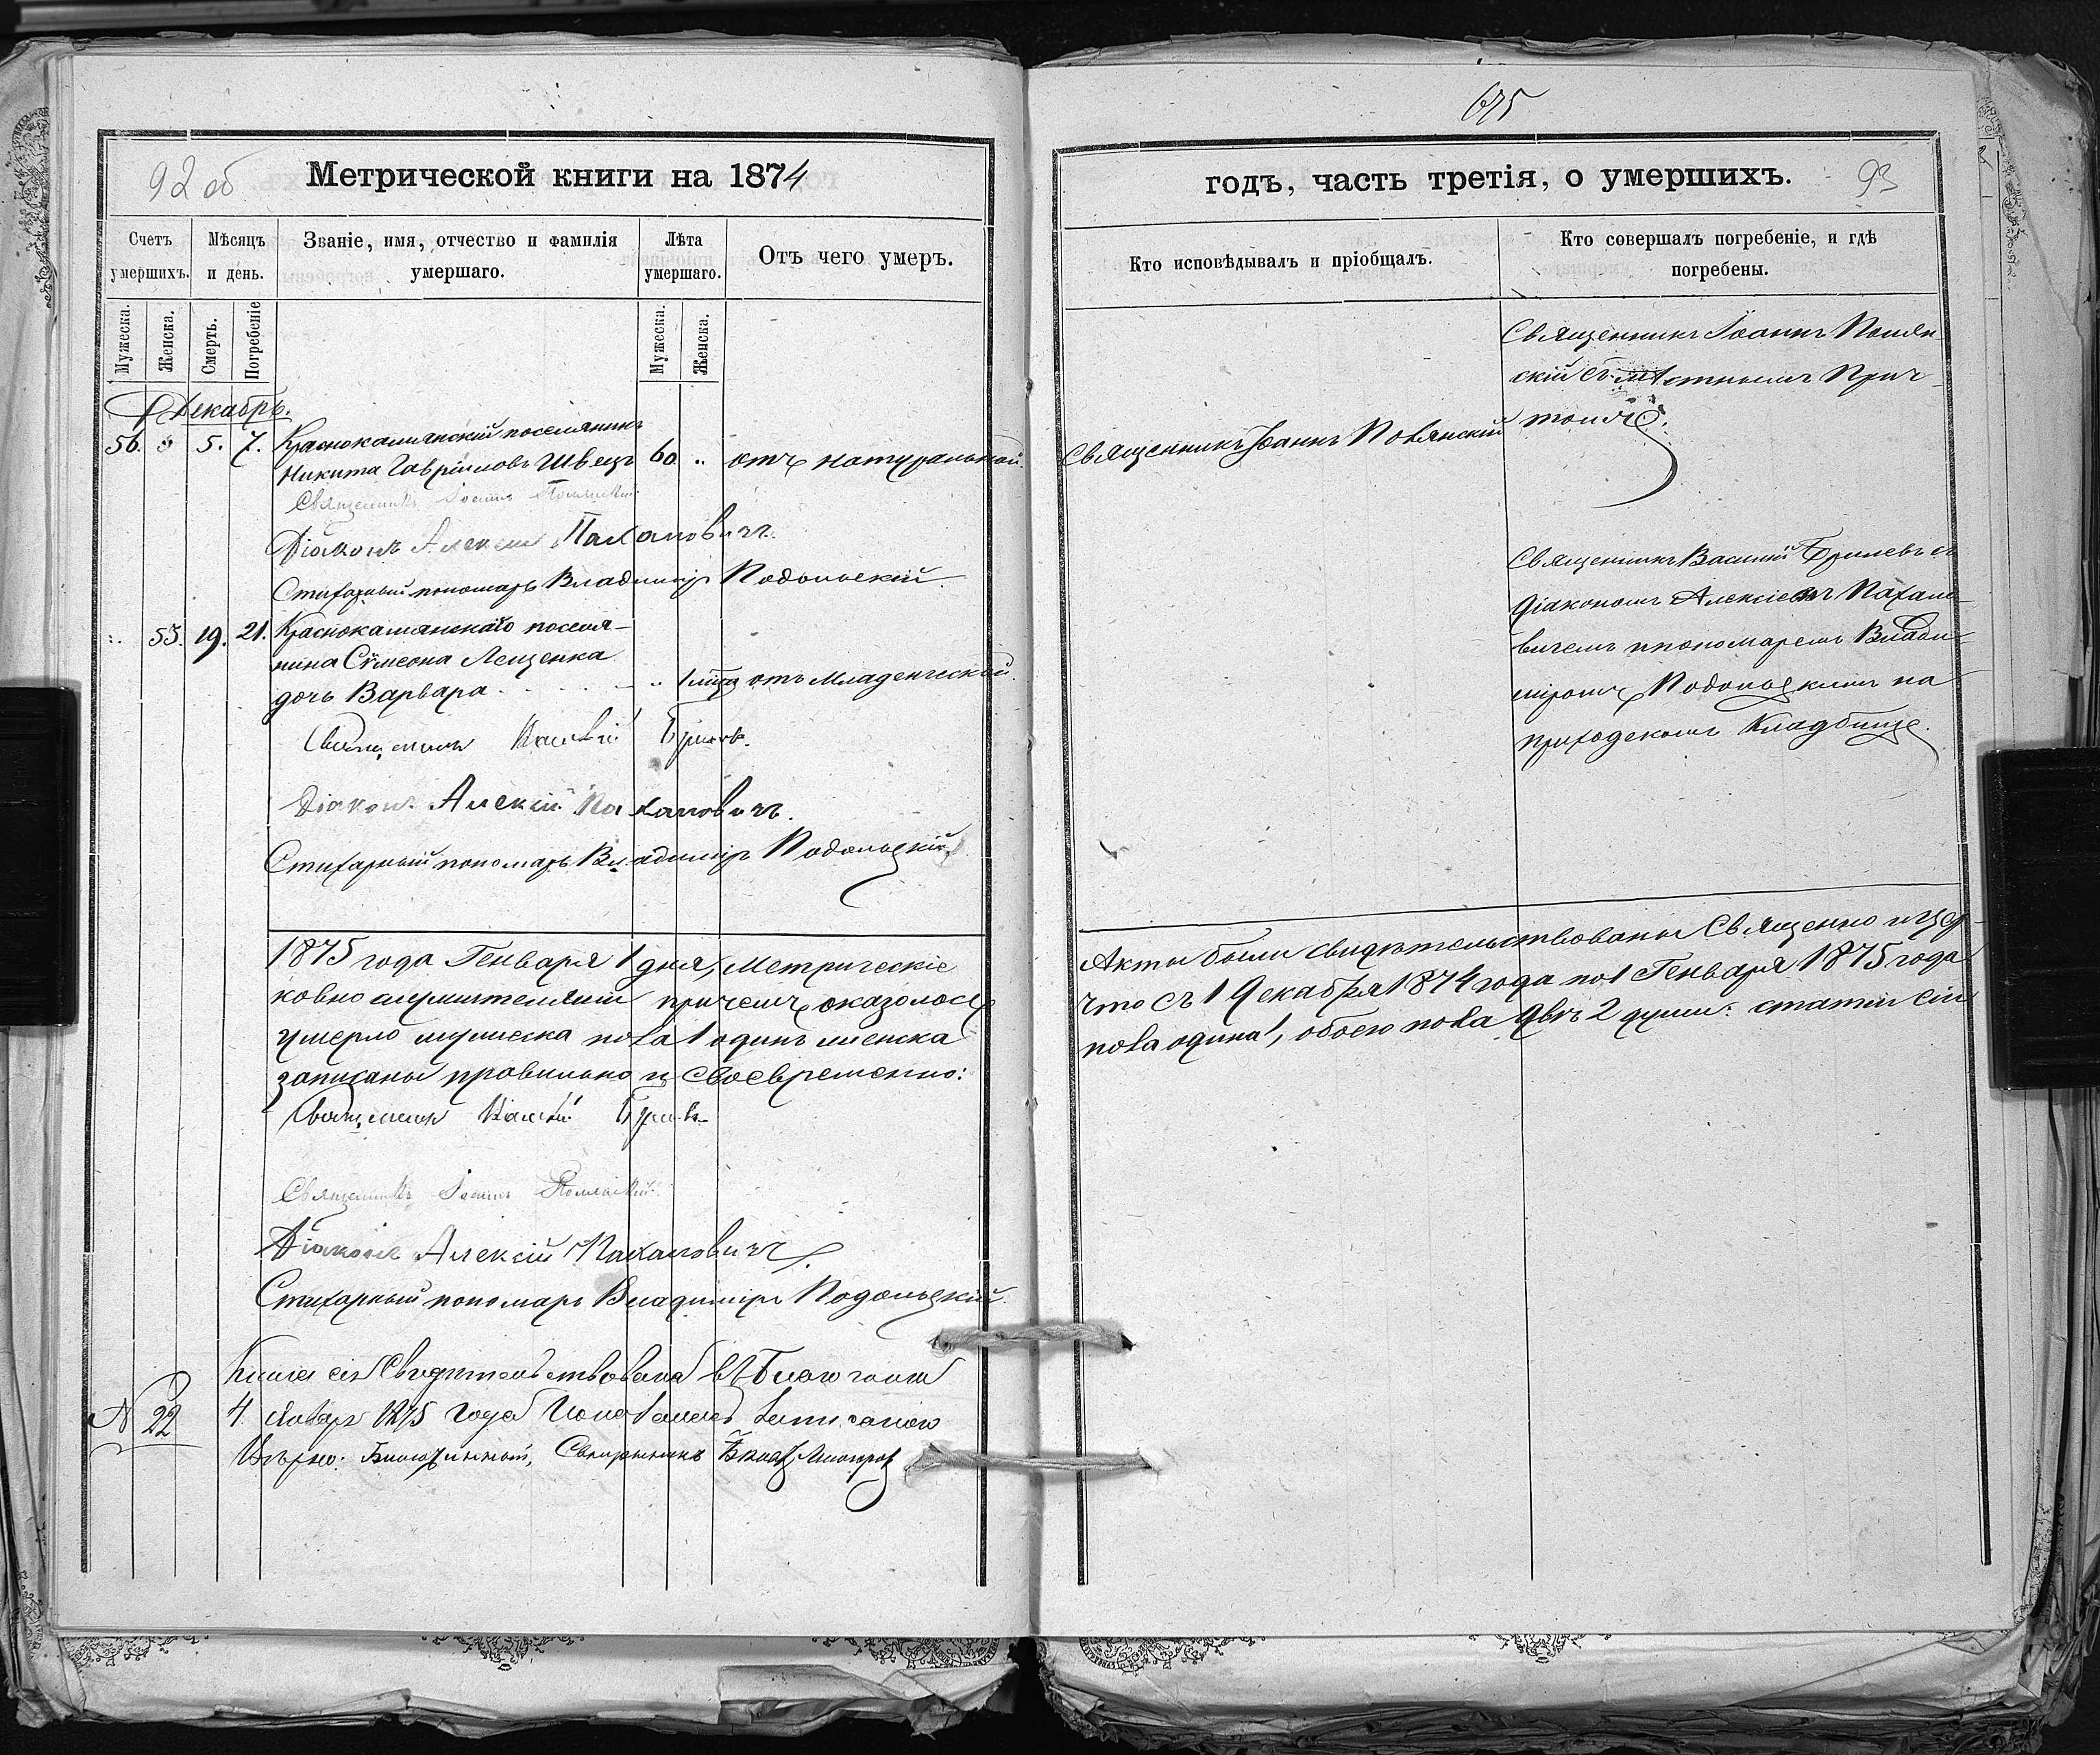 92 об
Метрической книги на 1874
Счетъ умершихъ.
Мѣсяцъ и день.
Званіе, имя, отчество и фамилія умершаго.
Лѣта умершаго.
Отъ чего умеръ.
Мужеска.
Женска.
Смерть.
Погребеніе
Мужеска.
Женска.
Декабрь.
56. " 5. 7. Краснокаменскій поселянинъ
Никита Гавріиловъ Швецъ 60 " отъ натуральной.
Священникъ Іоаннъ
Діаконъ Алексій Пахаловичъ.
Стихарный пономарь Владиміръ Подольскій
" 55. 19. 21. Краснокаменскаго поселя-
нина Сѵмеона Лещенка
дочь Варвара - " отъ младенческой.
Священникъ Василій
Діаконъ Алексій Пахаловичъ.
Стихарный пономарь Владиміръ Подольскій.
1875 года Генваря 1 дня, Метрическіе
ковно служителями причемъ оказолось
умерло мужеска пола 1 одинъ женска
записаны правильно и своевременно:
Священникъ Василій
Священникъ Іоаннъ
Діаконъ Алексій Пахаловичъ.
Стихарный пономарь Владиміръ Подольскій.
Книга сія Свидетельствована
N 22 4 1875 года
Вѣрно: Благочинный, Священникъ
675
годъ, часть третія, о умершихъ. 93
Кто исповѣдывалъ и пріобщалъ.
Кто совершалъ погребеніе, и гдѣ погребены.
Священникъ Іоаннъ
скій съ мѣстнымъ Прич-
томъ.
Священникъ Іоаннъ
Священникъ Василій съ
діакономъ Алексіемъ Пахало-
вичемъ и пономаремъ Влади-
міромъ Подольскимъ на
приходскомъ Кладбище.
Акты были свидѣтельствованы Священно и цер-
что съ 1 Декабря 1874 года по 1 Генваря 1875 года
пола одина 1, обоего пола двѣ 2 души: статьи сіи